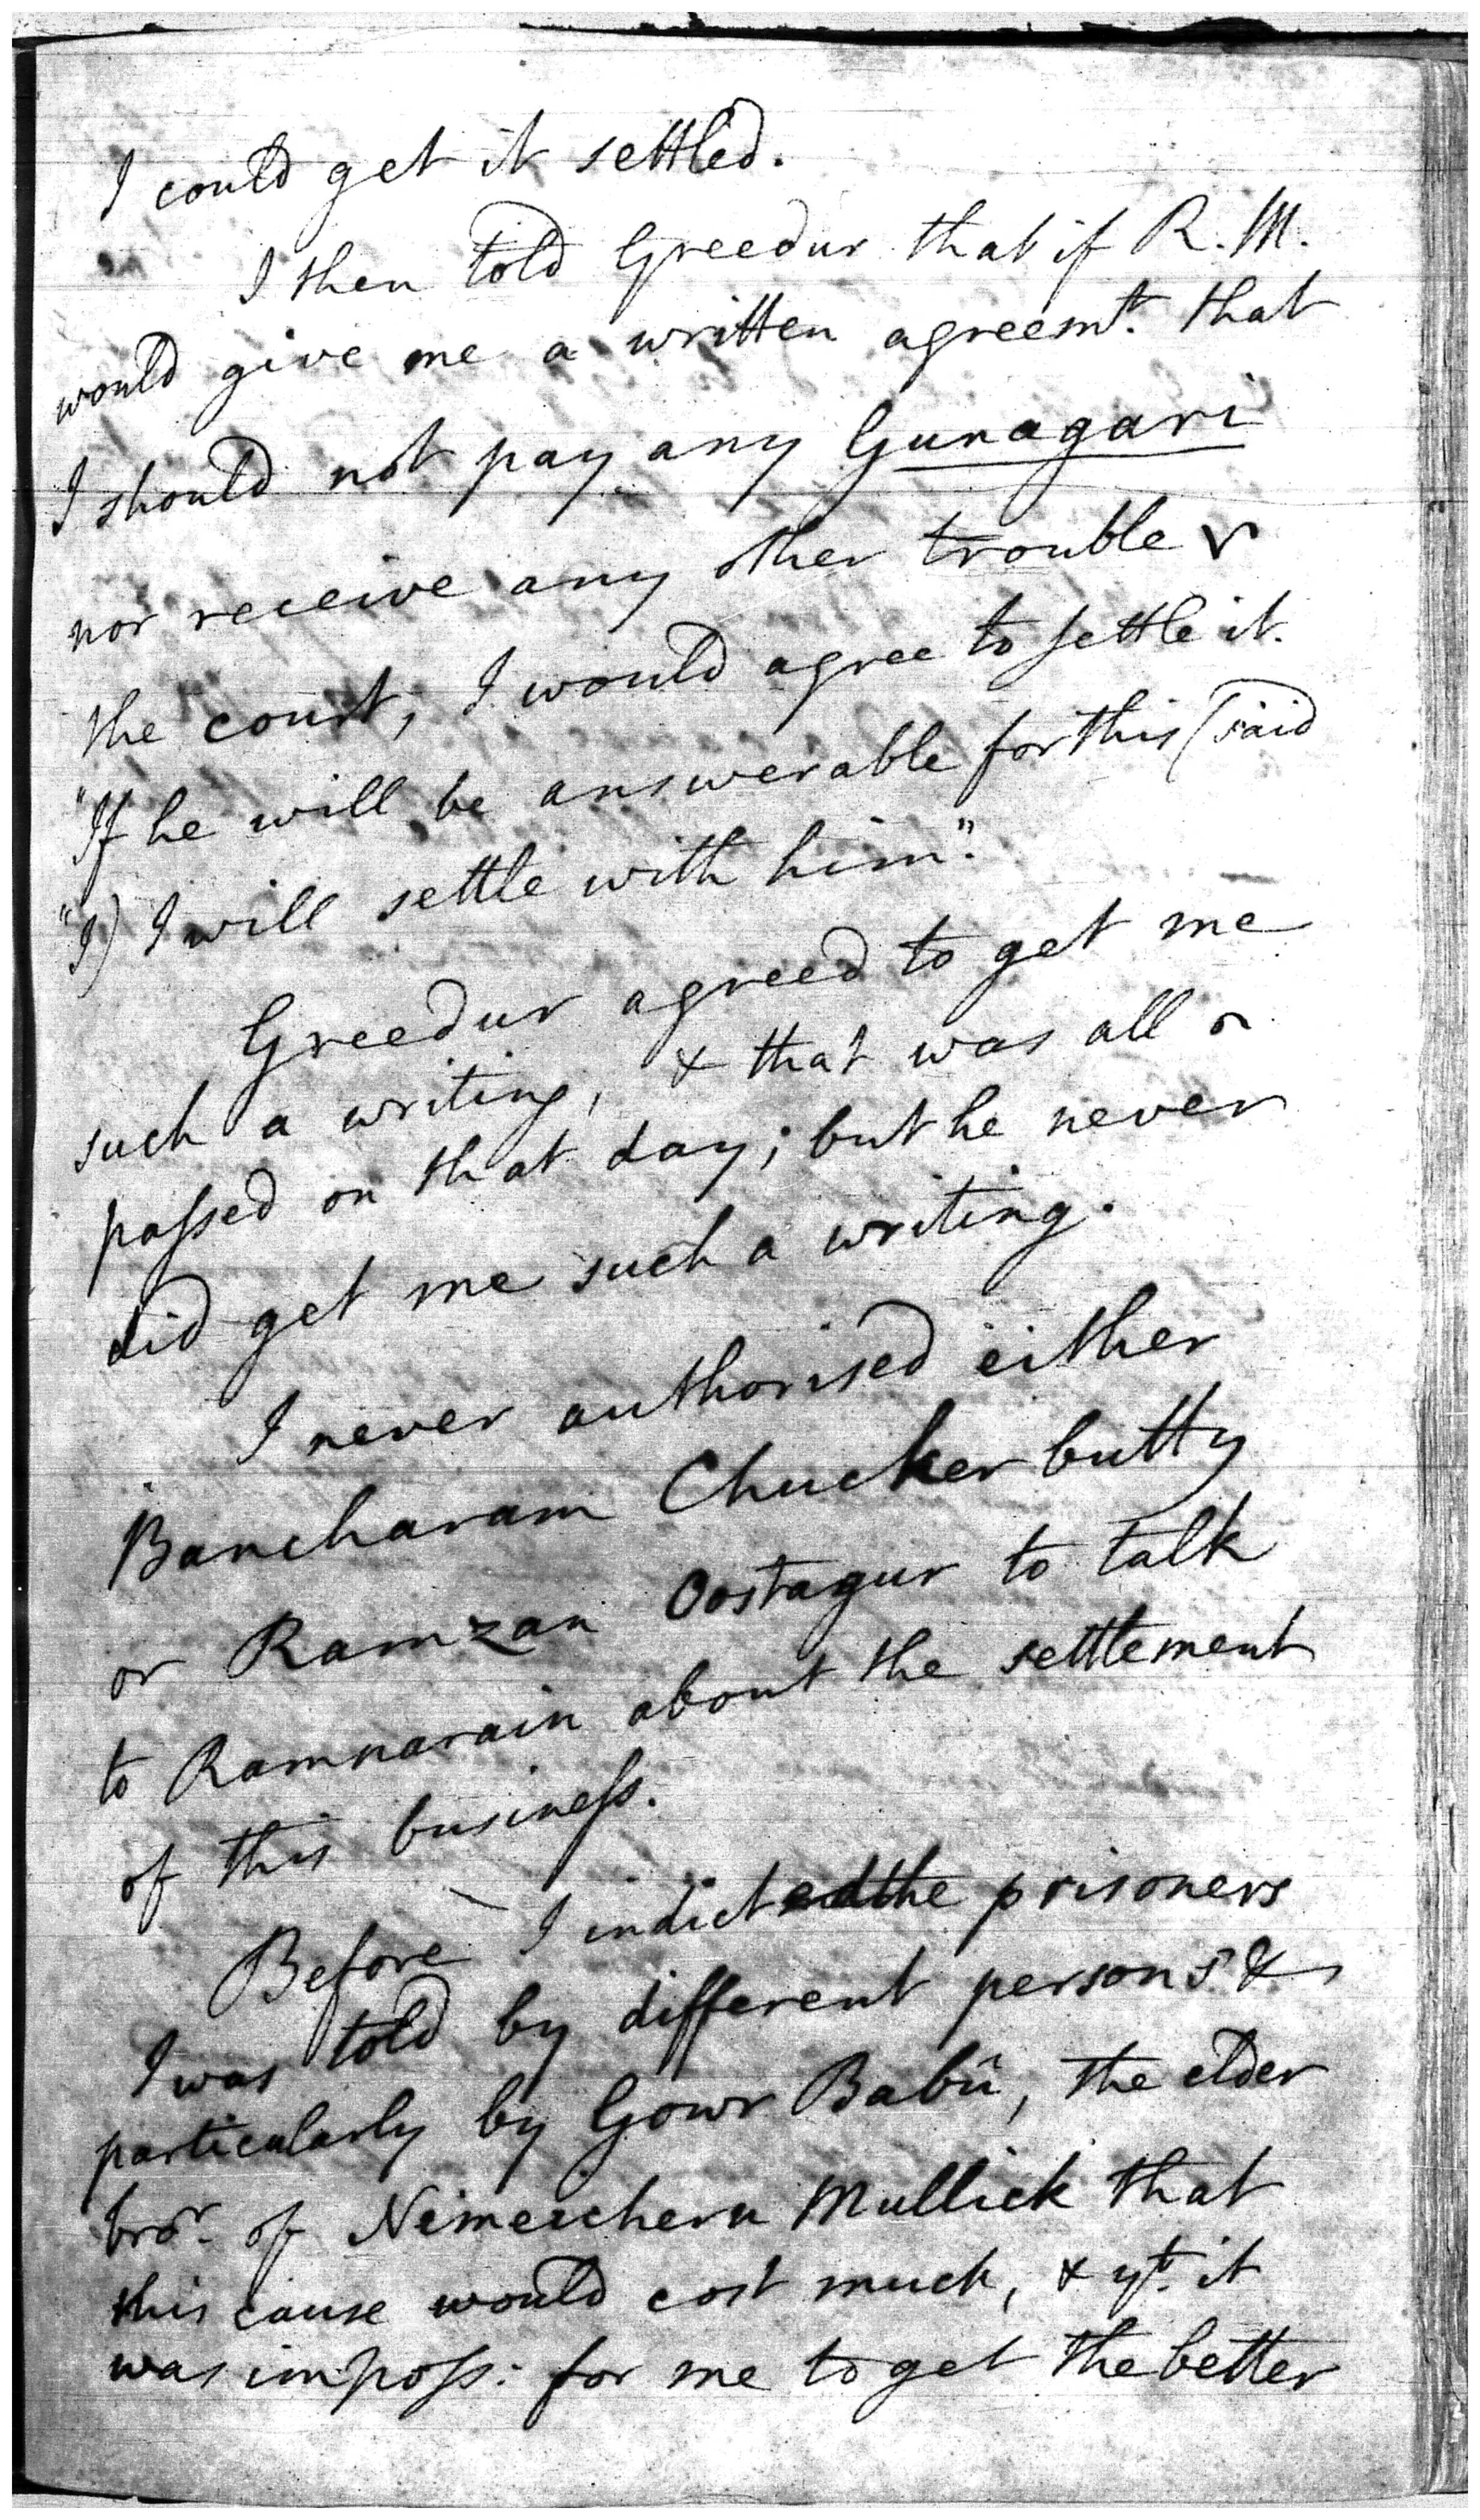 I could get it settled.
I then told Greedur that if R. M.
would give me a written agreemt. that
I should not pay any Gunagari
nor receive any other trouble
the court, I would agree to settle it.
"If he will be answerable for this (said
"I) I will settle with him".
Greedur agreed to get me
such a writing, & that was all
passed on that day; but he never
did get me such a writing.
I never authorised either
Bancharam Chuckerbutty
or Ramzan Oostagur to talk
to Ramnarain about the settlement
of this business.
Before I indicted the prisoners
I was told by different persons &
particularly by Gowr Babû, the elder
bror. of Nemeechern Mullick that
this cause would cost much, & yt. it
was imposs: for me to get the better